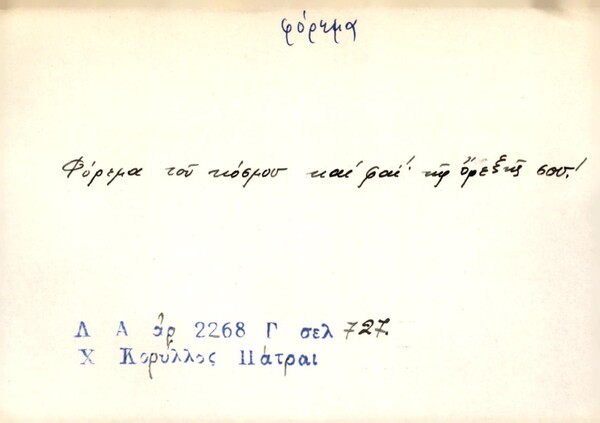 φόρεμα
Φόρεμα τοῦ κόσμου καί φαΐ τῆς ὄρεξής σου!
Λ Α ἀρ 2268 Γ σελ 727.
Χ Κορύλλος Πάτραι